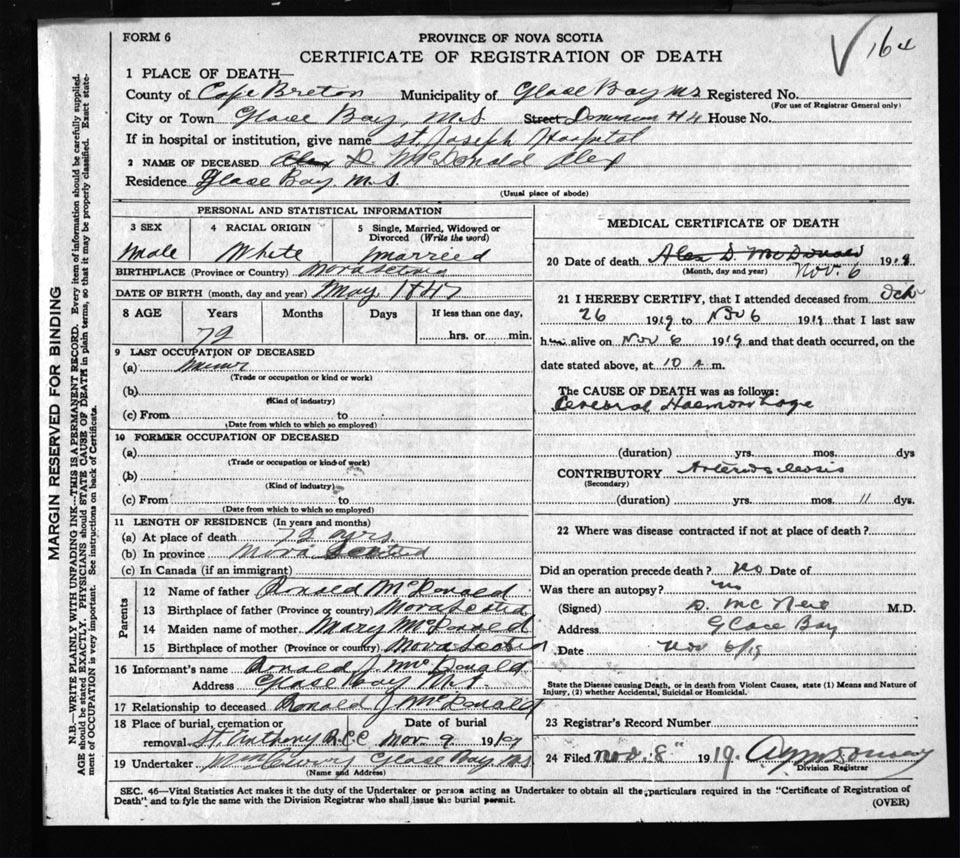 FORM 6
PROVINCE OF NOVA SCOTIA
CERTIFICATE OF REGISTRATION OF DEATH
164
1 PLACE OF DEATH—
County of Cape Breton Municipality of Glace Bay NS Registered No.
(For use of Registrar General only)
City or Town Glace Bay, N.S. Street Dominion #4 House No.
If in hospital or institution, give name St. Joseph Hospital
2 NAME OF DECEASED Alex D McDonald Alex
Residence Glace Bay N.S.
(Usual place of abode)
PERSONAL AND STATISTICAL INFORMATION
3 SEX 4 RACIAL ORIGIN 5 Single, Married, Widowed or Divorced (Write the word)
Male White Married
BIRTHPLACE (Province or Country) Nova Scotia
DATE OF BIRTH (month, day and year) May 1847
8 AGE Years Months Days If less than one day,
72 hrs. or min.
9 LAST OCCUPATION OF DECEASED
(a) Miner
(Trade or occupation or kind or work)
(b)
(Kind of industry)
(c) From to
(Date from which to which so employed)
10 FORMER OCCUPATION OF DECEASED
(a)
(Trade or occupation or kind of work)
(b)
(Kind of industry)
(c) From to
(Date from which to which so employed)
11 LENGTH OF RESIDENCE (In years and months)
(a) At place of death 72 yrs
(b) In province Nova Scotia
(c) In Canada (if an immigrant)
Parents
12 Name of father Ronald McDonald
13 Birthplace of father (Province or country) Nova Scotia
14 Maiden name of mother Mary McDonald
15 Birthplace of mother (Province or country) Nova Scotia
16 Informant's name Ronald J. McDonald
Address Glace Bay N.S.
17 Relationship to deceased Ronald J McDonald
18 Place of burial, cremation or removal St. Anthony R.C.C. Date of burial Nov. 9 1919
19 Undertaker Glace Bay NS
(Name and Address)
MEDICAL CERTIFICATE OF DEATH
20 Date of death Alex D. McDonald Nov. 6 1919
(Month, day and year)
21 I HEREBY CERTIFY, that I attended deceased from Oct
26 1919 to Nov 6 1919 that I last saw
him alive on Nov 6 1919 and that death occurred, on the
date stated above, at 10 a.m.
The CAUSE OF DEATH was as follows:
Cerebral Haemorrhage
(duration) yrs. mos. dys
CONTRIBUTORY Arteriosclerosis
(Secondary)
(duration) yrs. mos. 11 dys.
22 Where was disease contracted if not at place of death?
Did an operation precede death? No Date of
Was there an autopsy? no
(Signed) M.D.
Address Glace Bay
Date Nov 6/19
State the Disease causing Death, or in death from Violent Causes, state (1) Means and Nature of Injury, (2) whether Accidental, Suicidal or Homicidal.
23 Registrar's Record Number
24 Filed Nov. 8" 1919.
Division Registrar
SEC. 46—Vital Statistics Act makes it the duty of the Undertaker or person acting as Undertaker to obtain all the particulars required in the "Certificate of Registration of
Death" and to fyle the same with the Division Registrar who shall issue the burial permit.
(OVER)
MARGIN RESERVED FOR BINDING
N.B.—WRITE PLAINLY WITH UNFADING INK—THIS IS A PERMANENT RECORD. Every item of information should be carefully supplied.
AGE should be stated EXACTLY. PHYSICIANS should STATE CAUSE OF DEATH in plain terms, so that it may be properly classified. Exact state-
ment of OCCUPATION is very important. See instructions on back of Certificate.